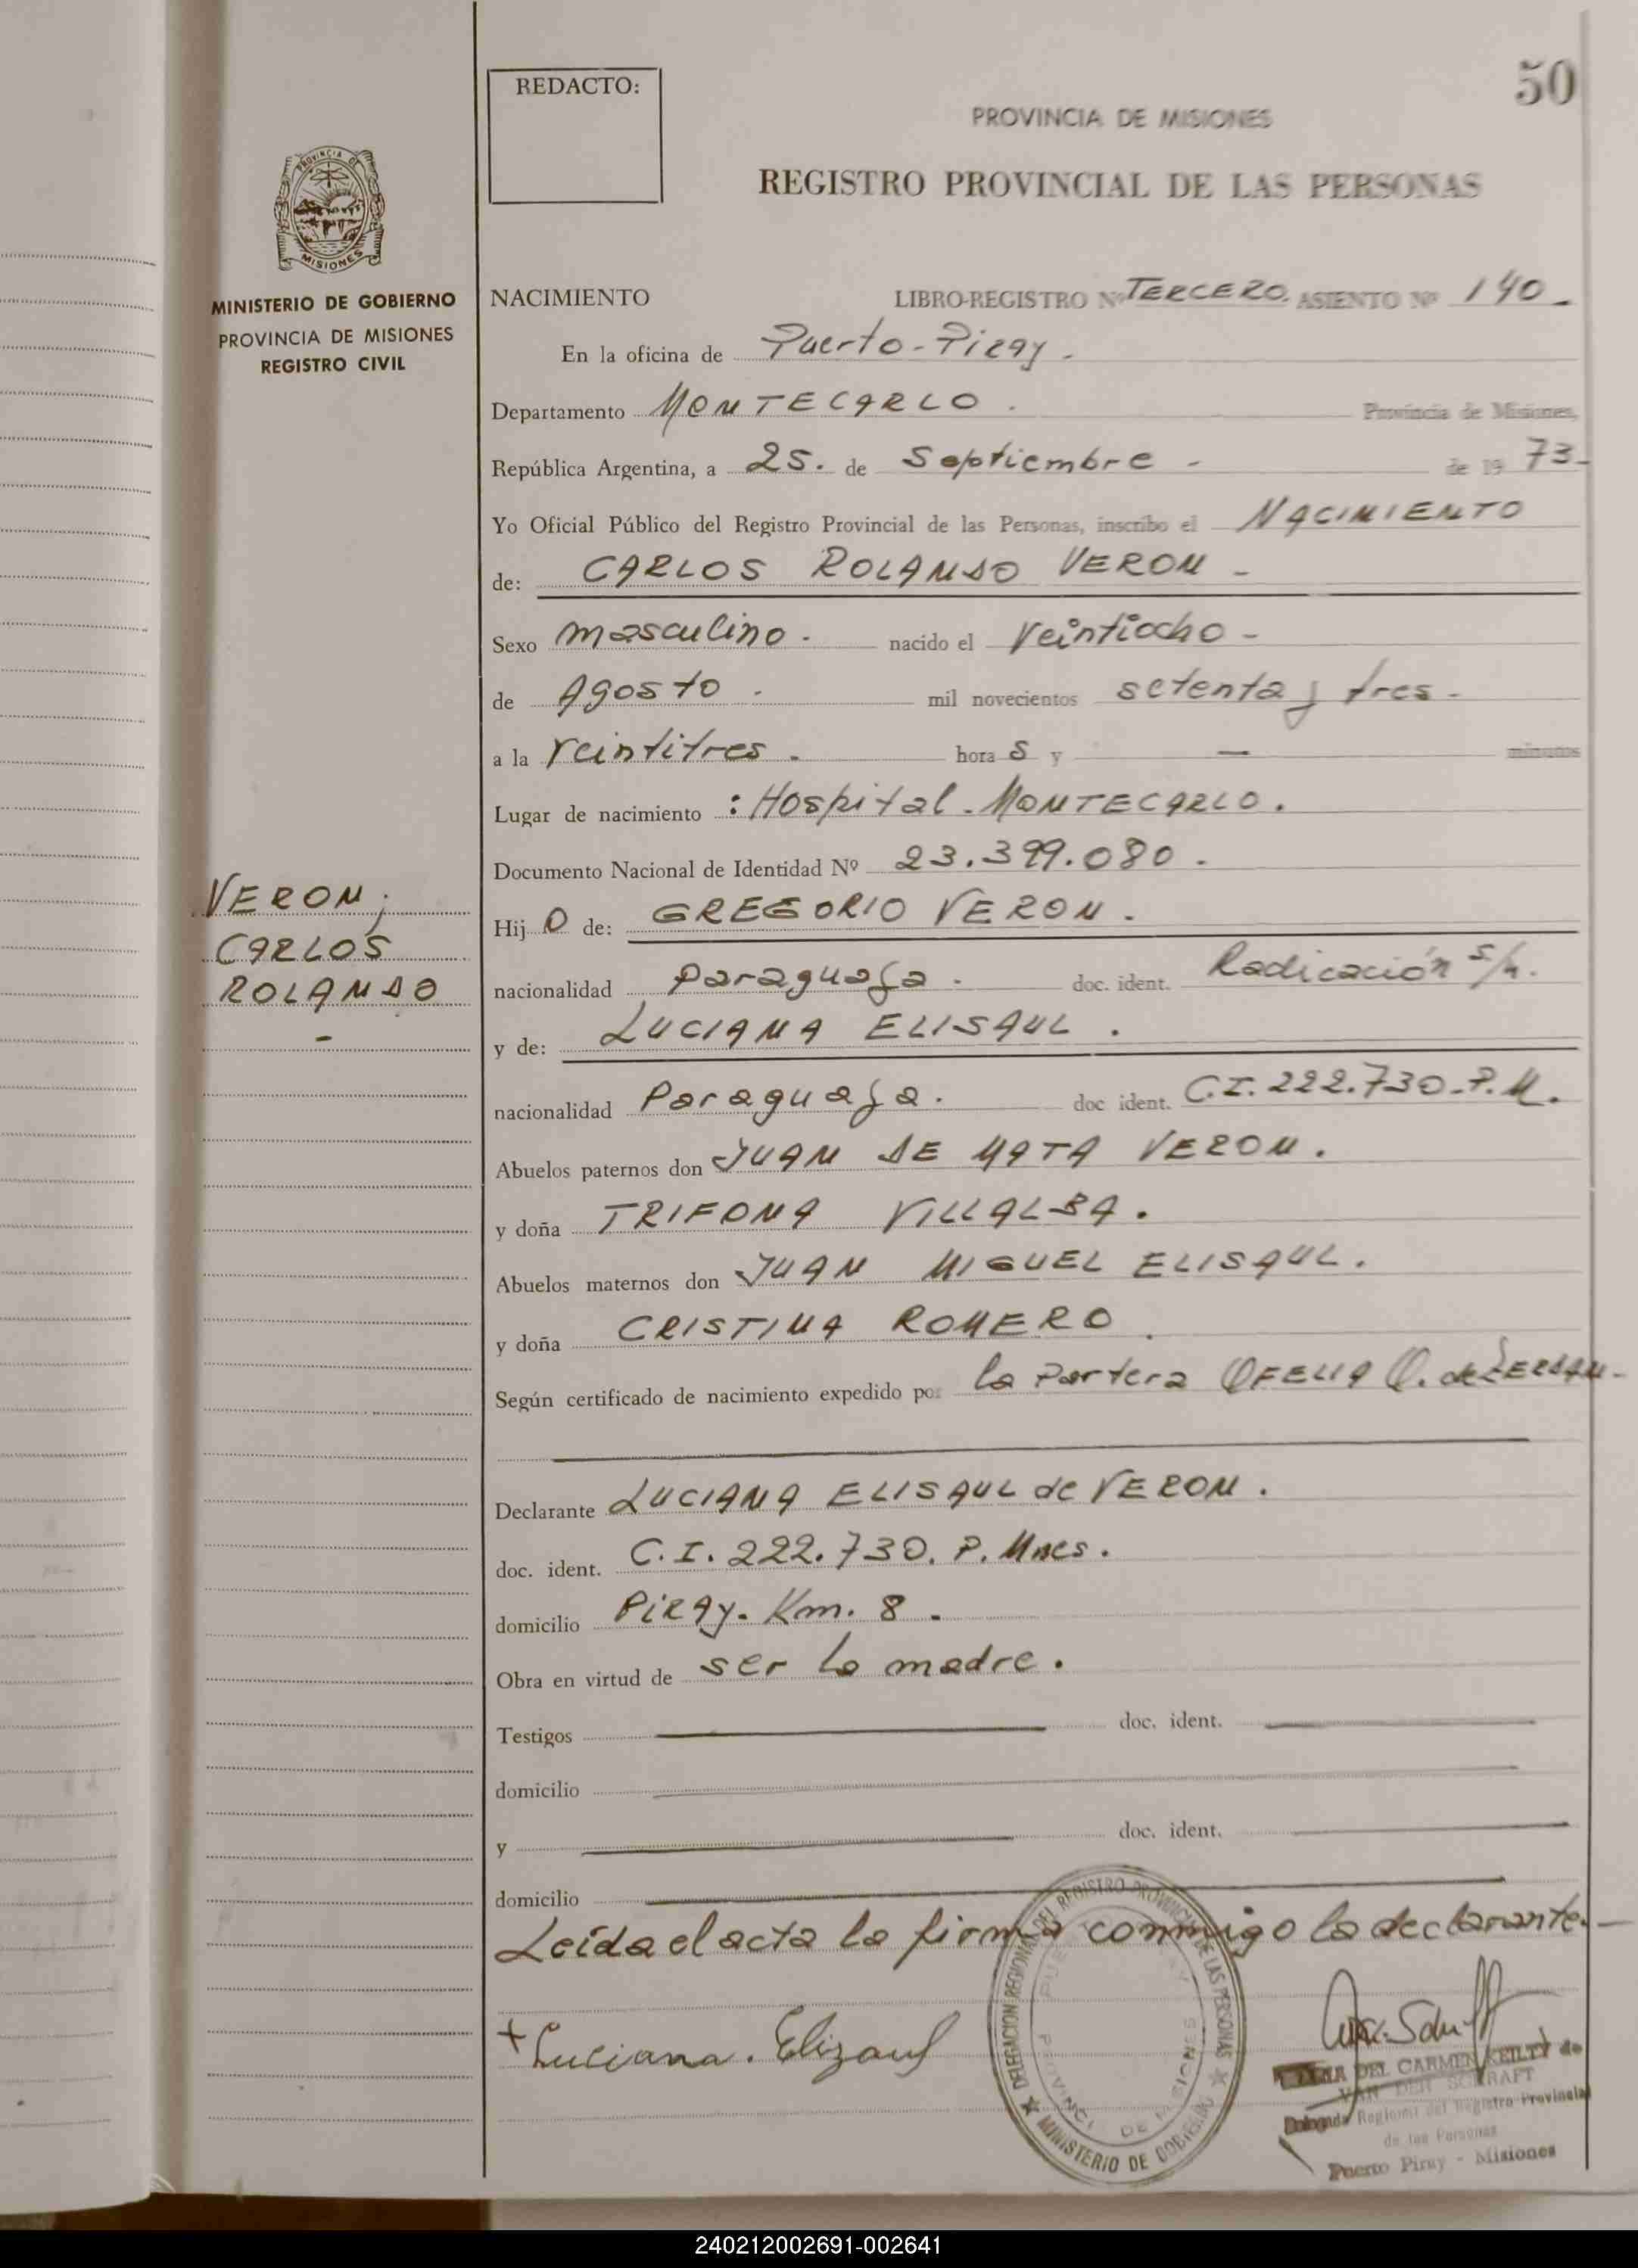 50
REDACTO:
PROVINCIA DE MISIONES
REGISTRO PROVINCIAL DE LAS PERSONAS
PROVINCIA DE
MISIONES
MINISTERIO DE GOBIERNO
PROVINCIA DE MISIONES
REGISTRO CIVIL
NACIMIENTO LIBRO-REGISTRO Nº TERCERO. ASIENTO Nº 140-
En la oficina de Puerto-Piray-
Departamento MONTECARLO. Provincia de Misiones,
República Argentina, a 25. de Septiembre - de 19 73-
Yo Oficial Público del Registro Provincial de las Personas, inscribo el NACIMIENTO
de: CARLOS ROLANDO VERON -
Sexo masculino. nacido el veintiocho -
de Agosto. mil novecientos setenta y tres-
a la veintitres. hora s y — minutos
Lugar de nacimiento : Hospital-MONTECARLO.
Documento Nacional de Identidad Nº 23.399.080.
VERON;
CARLOS
ROLANDO
-
Hij o de: GREGORIO VERON.
nacionalidad paraguaya. doc. ident. Radicación s/n.
y de: LUCIANA ELISAUL.
nacionalidad Paraguaya. doc ident. C.I. 222.730-P.M.
Abuelos paternos don JUAN DE MATA VERON.
y doña TRIFONA VILLALBA.
Abuelos maternos don JUAN MIGUEL ELISAUL.
y doña CRISTINA ROMERO.
Según certificado de nacimiento expedido por la Partera OFELIA Q. de
Declarante LUCIANA ELISAUL de VERON.
doc. ident. C.I. 222.730. P. Mnes.
domicilio PIRAY. Km. 8.
Obra en virtud de ser la madre.
Testigos doc. ident.
domicilio
y doc. ident.
domicilio
Leída el acta la firma conmigo la declarante.-
+ Luciana. Elizaul
DELEGACION REGIONAL DEL REGISTRO PROVINCIAL DE LAS PERSONAS
MINISTERIO DE GOBIERNO
PROVINCIA DE MISIONES
DEL CARMEN KEILTY de
VAN DER SCHRAFT
Delegada Regional del Registro Provincial
de las Personas
Puerto Piray - Misiones
240212002691-002641